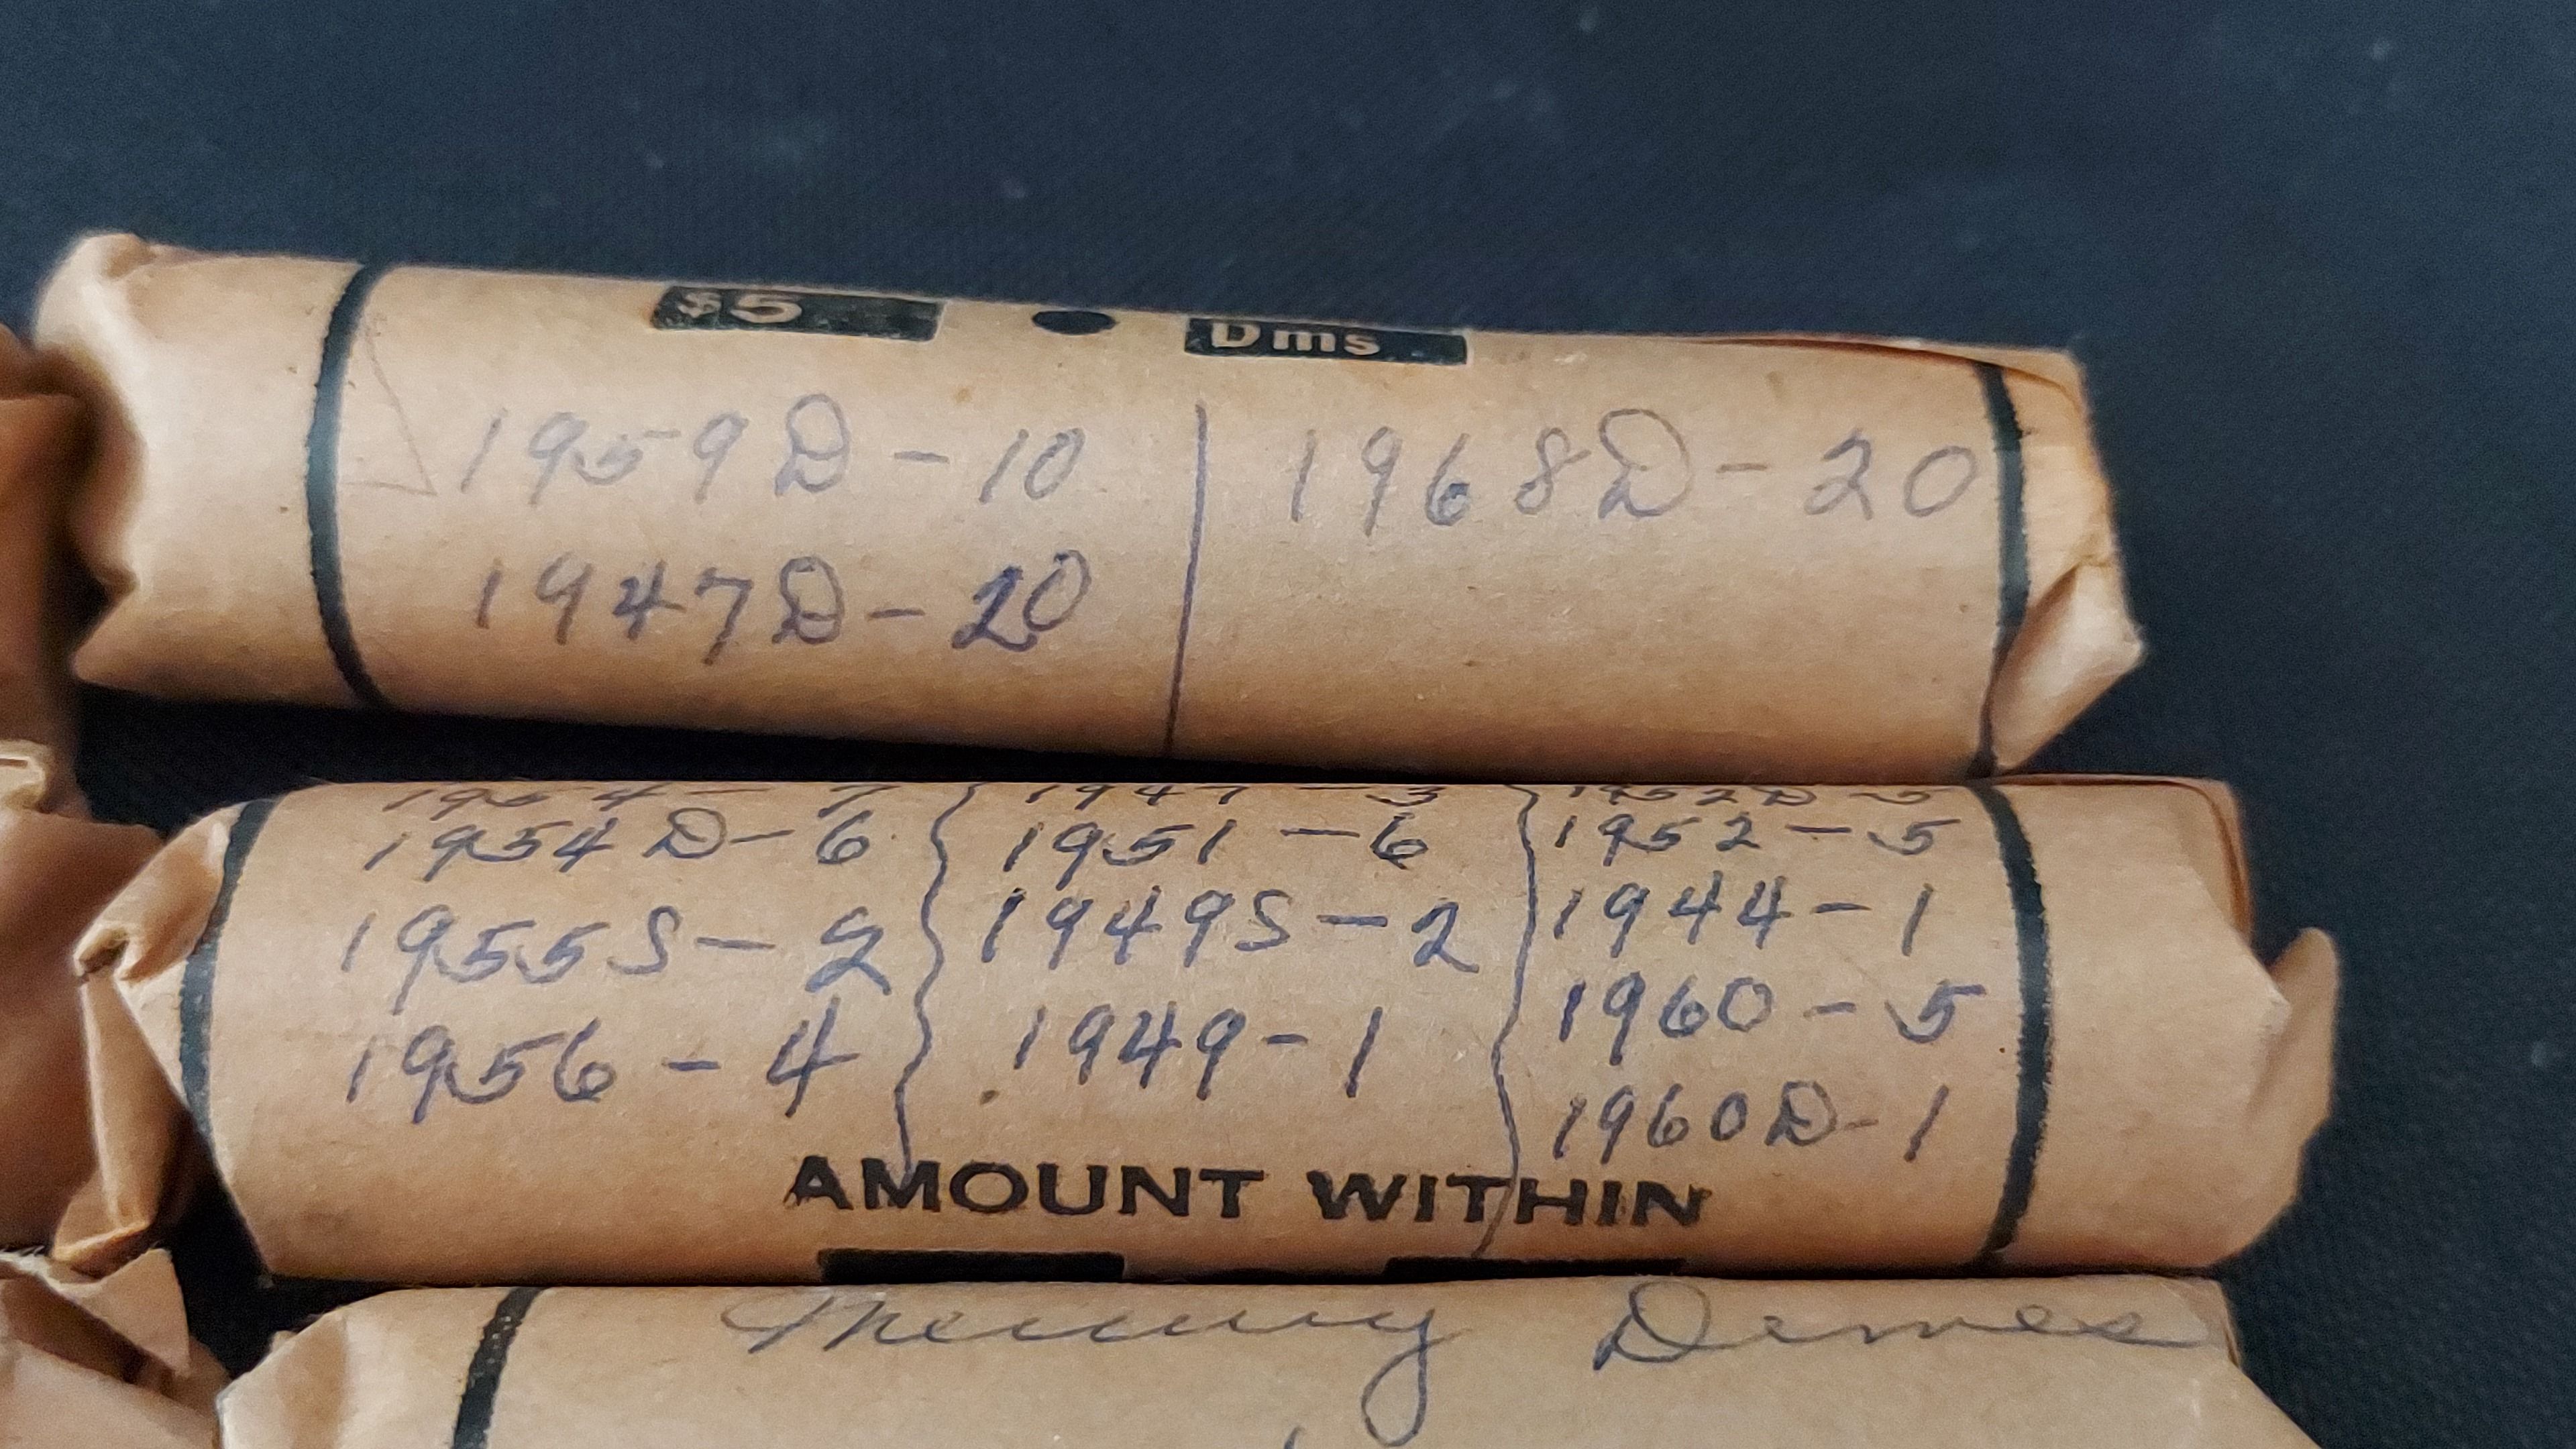 $5 Dms
1959D - 10 1968D - 20
1947D - 20
1954 - 7 1947 - 3 1952D - 5
1954D - 6 1951 - 6 1952 - 5
1955S - 2 1949S - 2 1944 - 1
1956 - 4 1949 - 1 1960 - 5
1960D - 1
AMOUNT WITHIN
Mercury Dimes